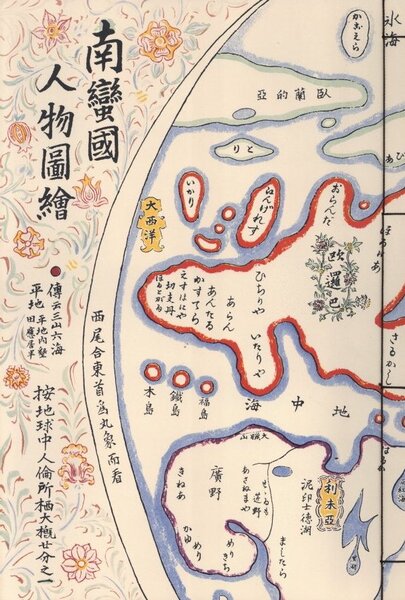 南蠻國
人物圖繪
傳云三山六海
平地 平地内墾
田蔦居半
按地球中人倫所栖大槪廿分之一
西尾合東首為丸象而看
氷海
臥蘭的亞
とり
いかり
大西洋
おらんだ
歐邏巴
ひちりや
いたりや
あらん
あんたる
かすてら
えすはにや
切支丹
ほるとがる
さるかし
地中海
福島
鐵島
木島
大槪山
廣野
きねあ
かゆ
めり
めりきち
あさねまや
莲野
利未亞
泥印士徳湖
ましたら